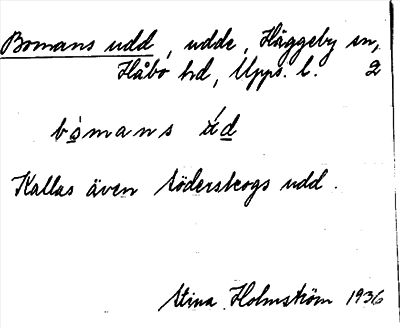 Bomans udd, udde, Häggeby sn,
Håbo hd, Upps. l. 2
bòmans ú̀d
Kallas även Söderskogs udd.
Stina Holmström 1936